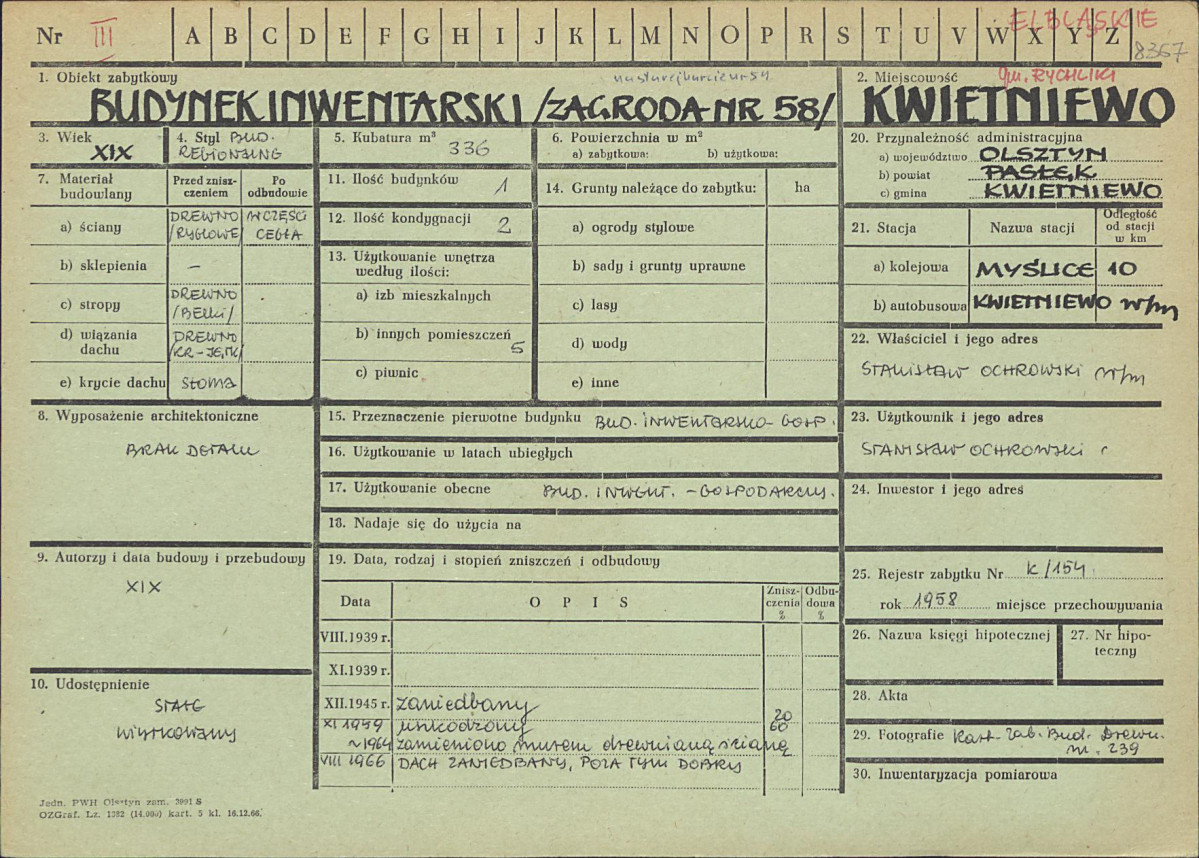 Nr III A B C D E F G H I J K L M N O P R S T U V W X Y Z
ELBLĄSKIE
8357
gm. RYCHLIKI
1. Obiekt zabytkowy
BUDYNEK INWENTARSKI /ZAGRODA NR 58/
2. Miejscowość
KWIETNIEWO
3. Wiek
XIX
4. Styl BUD.
REGIONALNG
5. Kubatura m³
336
6. Powierzchnia w m²
a) zabytkowa: b) użytkowa:
7. Materiał budowlany
Przed zniszczeniem
Po odbudowie
a) ściany
DREWNO /RYGLOWE/
W CZĘŚCI CEGŁA
b) sklepienia
—
c) stropy
DREWNO /BELKI/
d) wiązania dachu
DREWNO /KR-JĘTK/
e) krycie dachu
SŁOMA
8. Wyposażenie architektoniczne
BRAK DETALU
9. Autorzy i data budowy i przebudowy
XIX
10. Udostępnienie
STALE
UŻYTKOWANY
11. Ilość budynków
1
12. Ilość kondygnacji
2
13. Użytkowanie wnętrza według ilości:
a) izb mieszkalnych
b) innych pomieszczeń
5
c) piwnic
14. Grunty należące do zabytku: ha
a) ogrody stylowe
b) sady i grunty uprawne
c) lasy
d) wody
e) inne
15. Przeznaczenie pierwotne budynku BUD. INWENTARSKO-GOSP.
16. Użytkowanie w latach ubiegłych
17. Użytkowanie obecne BUD. INWENT. - GOSPODARCZY.
18. Nadaje się do użycia na
19. Data, rodzaj i stopień zniszczeń i odbudowy
Data OPIS Zniszczenia % Odbudowa %
VIII.1939 r.
XI.1939 r.
XII.1945 r. zaniedbany 20
XI 1959 uszkodzony 60
~1964 zamieniono murem drewnianą ścianę
VIII 1966 DACH ZANIEDBANY, POZA TYM DOBRY
20. Przynależność administracyjna
a) województwo OLSZTYN
b) powiat PASŁĘK
c) gmina KWIETNIEWO
21. Stacja Nazwa stacji Odległość od stacji w km
a) kolejowa MYŚLICE 10
b) autobusowa KWIETNIEWO w/m
22. Właściciel i jego adres
STANISŁAW OCHROWSKI w/m
23. Użytkownik i jego adres
STANISŁAW OCHROWSKI
24. Inwestor i jego adres
25. Rejestr zabytku Nr K/154
rok 1958 miejsce przechowywania
26. Nazwa księgi hipotecznej
27. Nr hipoteczny
28. Akta
29. Fotografie Kart. Zab. Bud. Drewn.
nr. 239
30. Inwentaryzacja pomiarowa
Jedn. PWH Olsztyn zam. 3991 S
OZGraf. Lz. 1382 (14.000) kart. 5 kl. 16.12.66.